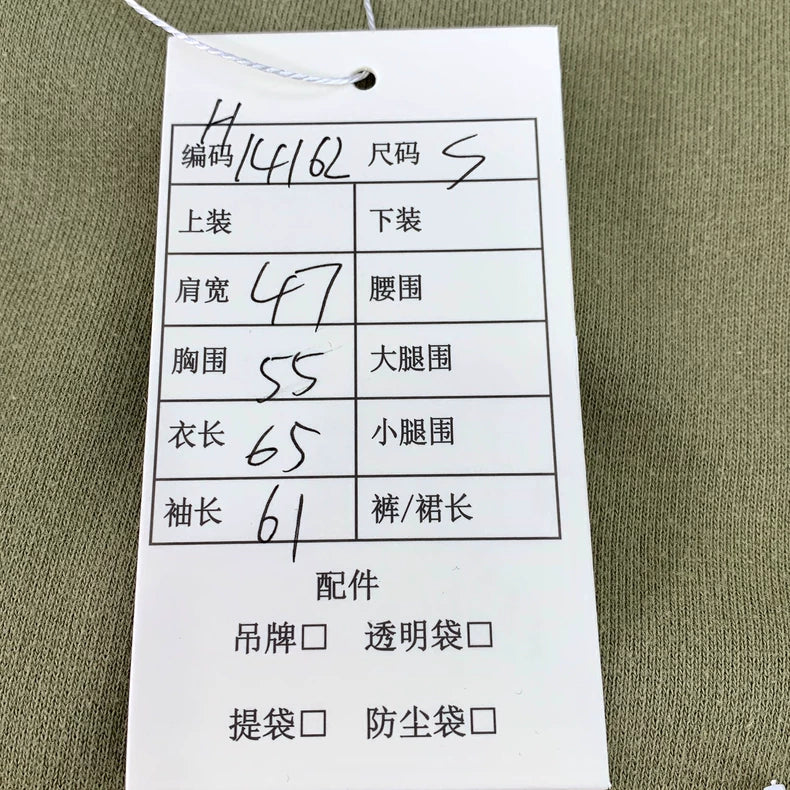 H
编码 14162 尺码 S
上装 下装
肩宽 47 腰围
胸围 55 大腿围
衣长 65 小腿围
袖长 61 裤/裙长
配件
吊牌□ 透明袋□
提袋□ 防尘袋□